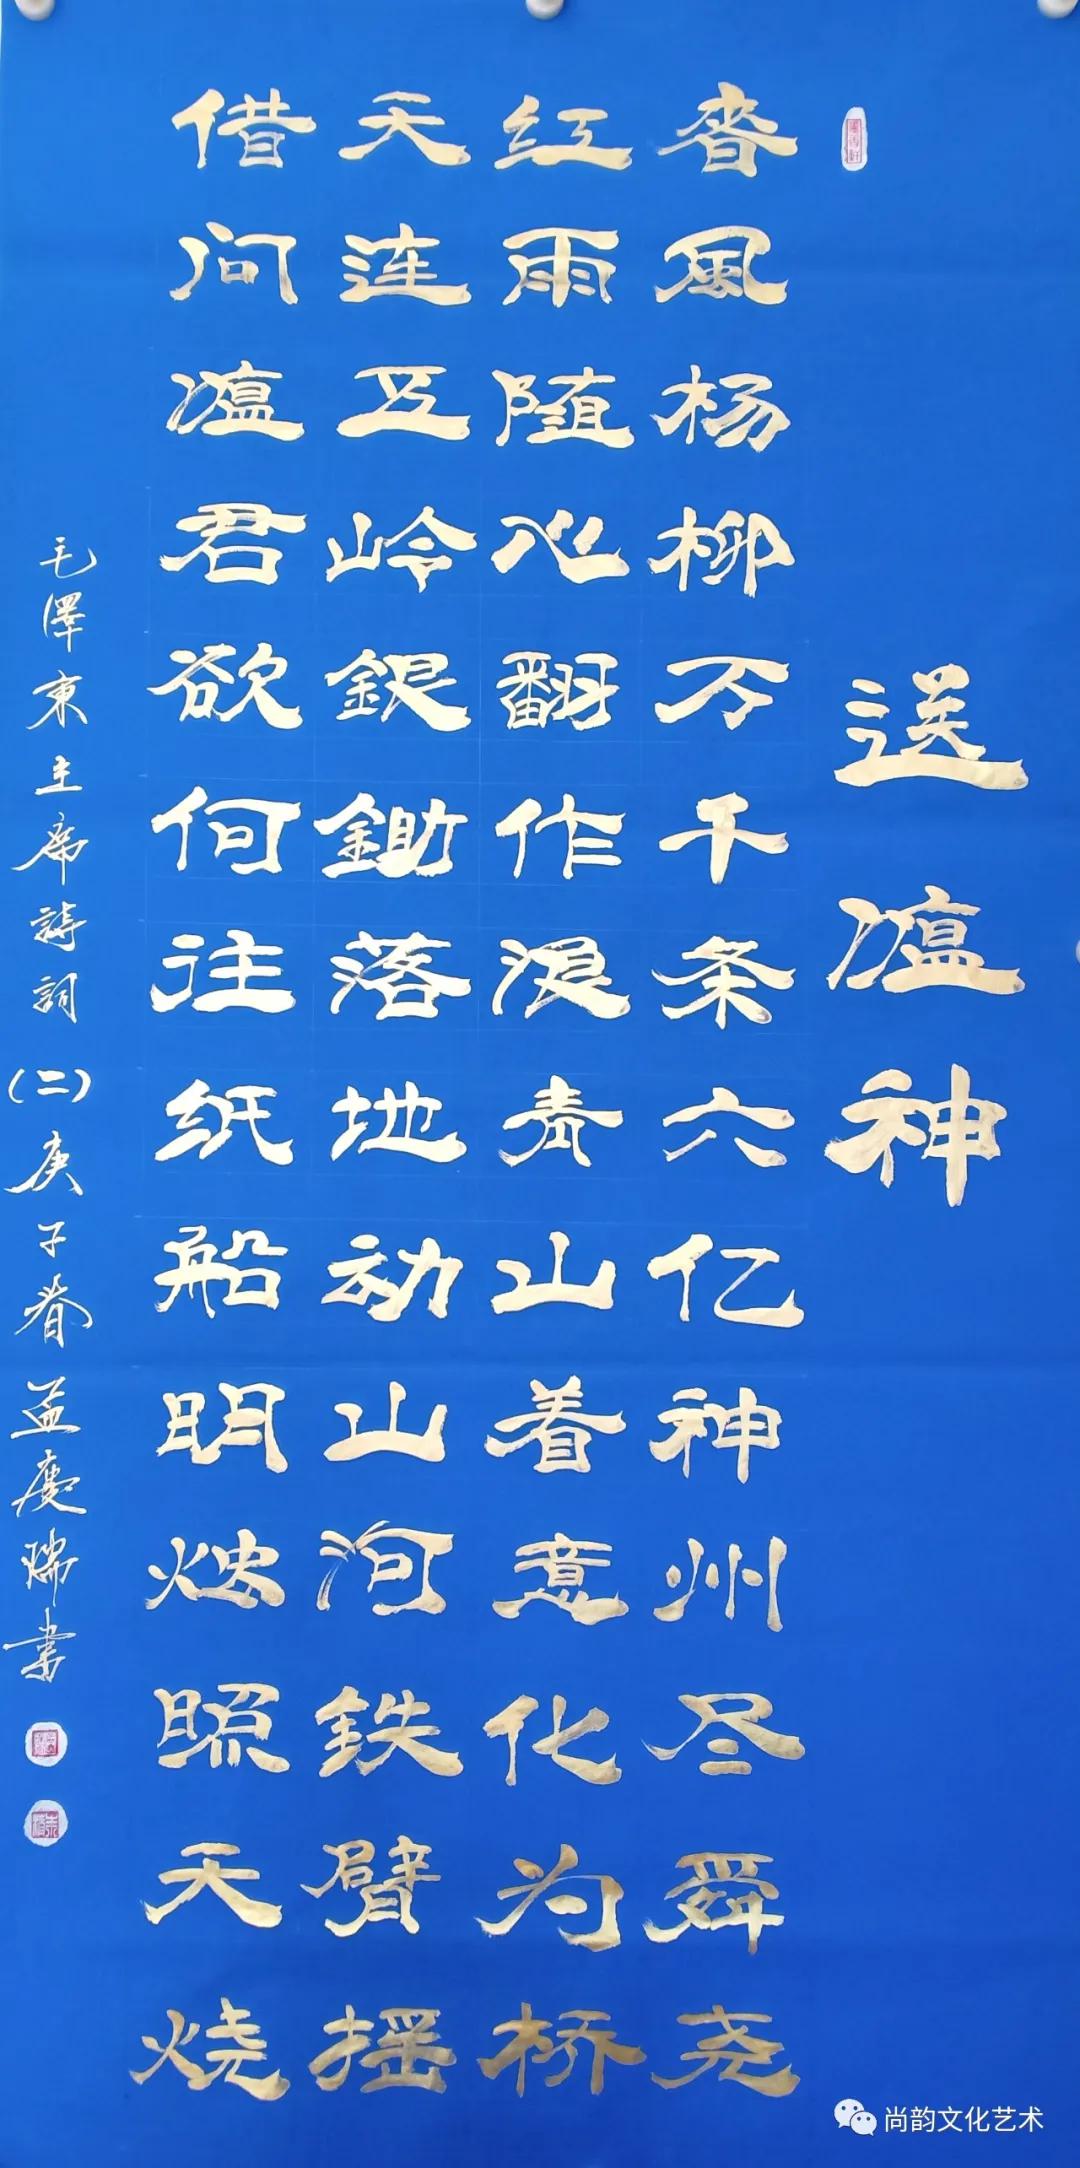 送瘟神
春風杨柳万千条六亿神州尽舜尧
红雨随心翻作浪青山着意化为桥
天连五岭銀鋤落地动山河鉄臂摇
借问瘟君欲何往纸船明烛照天烧
毛澤東主席詩詞(二)庚子春慶瑞書
尚韵文化艺术